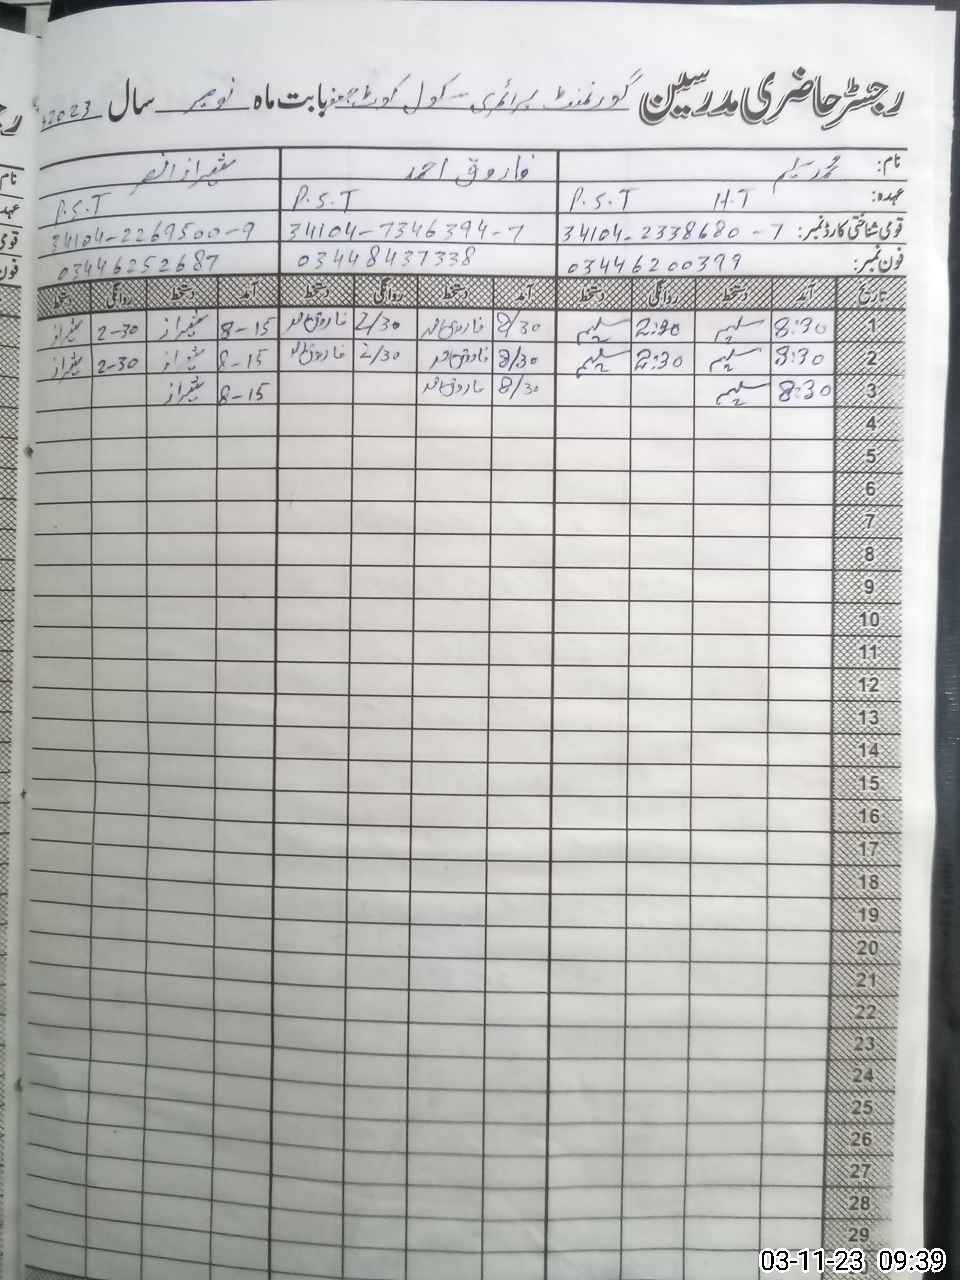 رجسٹر حاضری مدرسین گورنمنٹ پرائمری سکول کوٹ بابت ماہ نومبر سال 2023
نام: محمد سلیم فاروق احمد
عہدہ: H.T P.S.T P.S.T P.S.T
قومی شناختی کارڈ نمبر: 34104-2338680-7 34104-7346394-7 34104-2269500-9
فون نمبر: 03446200399 03448437338 03446252687
تاریخ آمد دستخط روانگی دستخط آمد دستخط روانگی دستخط آمد دستخط روانگی دستخط
1 8:30 سلیم 2:30 سلیم 8/30 فاروق احمد 2/30 فاروق احمد 8-15 شیراز 2-30 شیراز
2 8:30 سلیم 2:30 سلیم 8/30 فاروق احمد 2/30 فاروق احمد 8-15 شیراز 2-30 شیراز
3 8:30 سلیم 8/30 فاروق احمد 8-15 شیراز
4
5
6
7
8
9
10
11
12
13
14
15
16
17
18
19
20
21
22
23
24
25
26
27
28
29
03-11-23 09:39